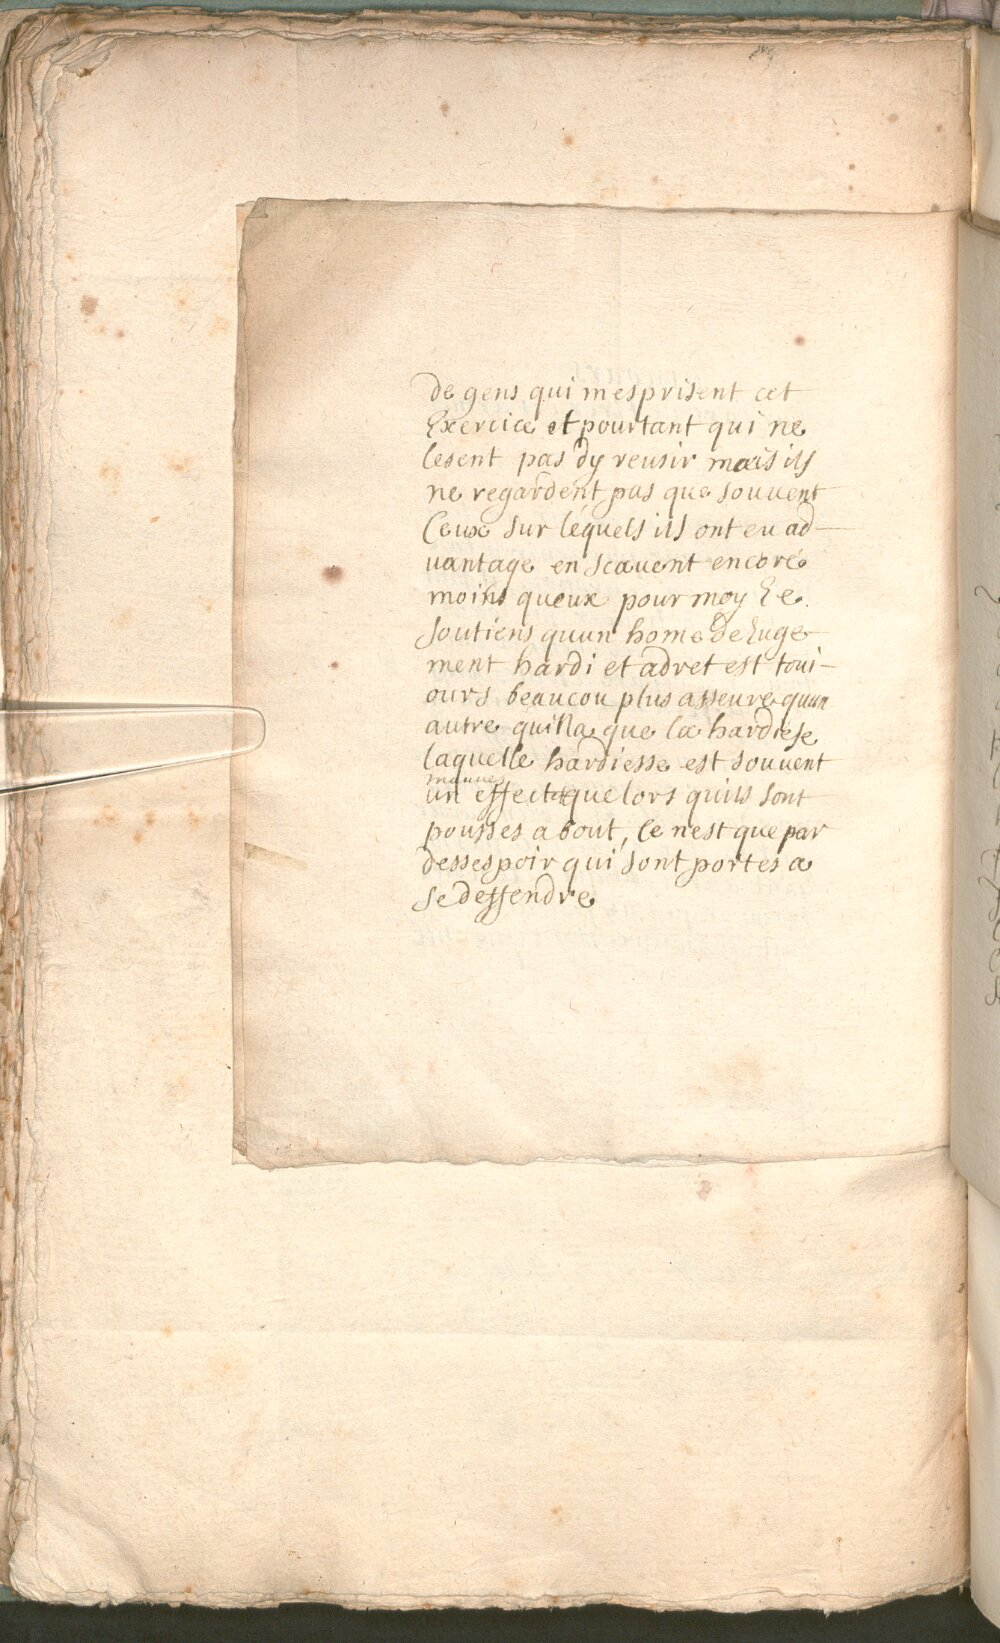 de gens qui mesprisent cet
Exercice et pourtant qui ne
lesent pas dy reusir mais ils
ne regardent pas que souvent
Ceux sur léquels ils ont eu ad-
vantage en scavent encore
moins queux pour moy Ie
soutiens quun home de Iuge
ment hardi et adret est toui-
ours beaucou plus asseure quun
autre quilla que la hardiese
laquelle hardiesse est souvent
mauves
un effect que lors quils sont
pousses a bout, Ce nest que par
dessespoir qui sont portes a
se deffendre